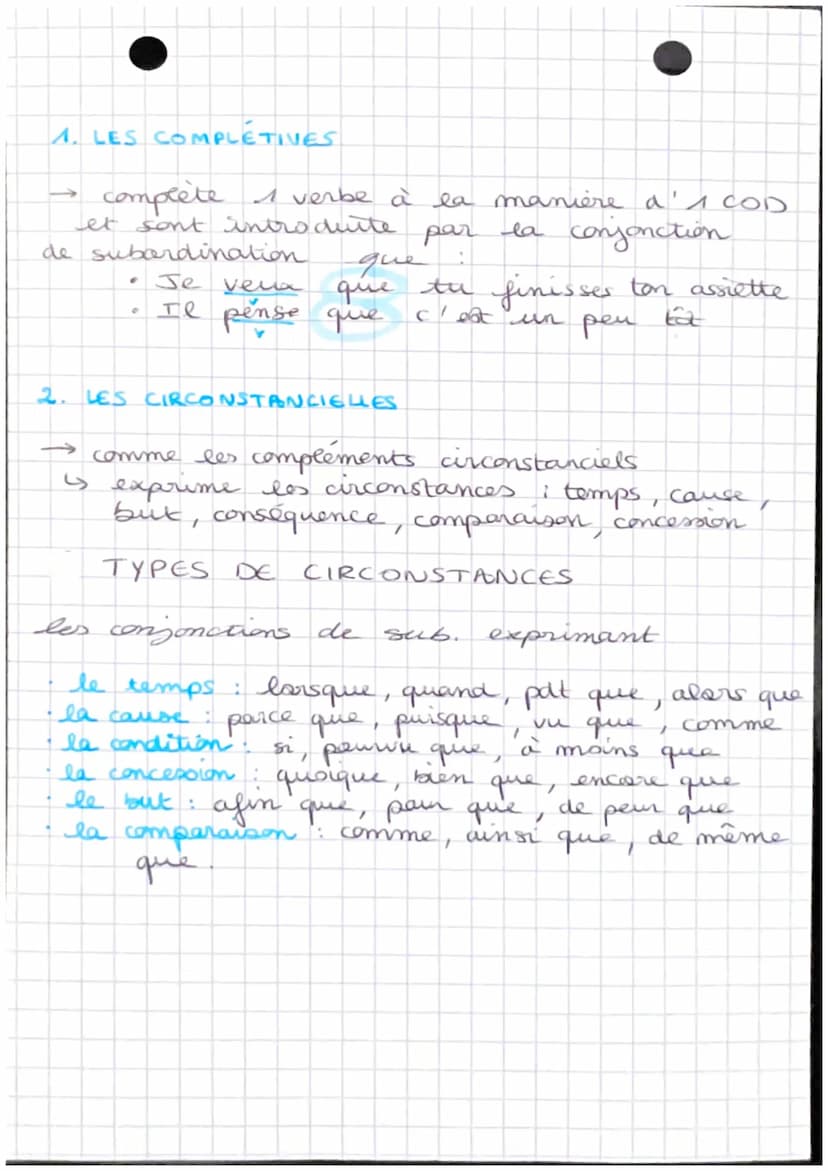 1. LES COMPLÉTIVES
→ complète 1 verbe à la manière d'1 COD
et sont introduite par la conjonction
de subordination que :
• Je veux que tu finisses ton assiette
• Il pense que c'est un peu tôt
v
2. LES CIRCONSTANCIELLES
→ comme les compléments circonstanciels
↳ exprime les circonstances : temps, cause,
but, conséquence, comparaison, concession
TYPES DE CIRCONSTANCES
les conjonctions de sub. exprimant
· le temps : lorsque, quand, pdt que, alors que
· la cause : parce que, puisque, vu que, comme
· la condition : si, pourvu que, à moins que
· la concession : quoique, bien que, encore que
· le but : afin que, pour que, de peur que
· la comparaison : comme, ainsi que, de même
que.